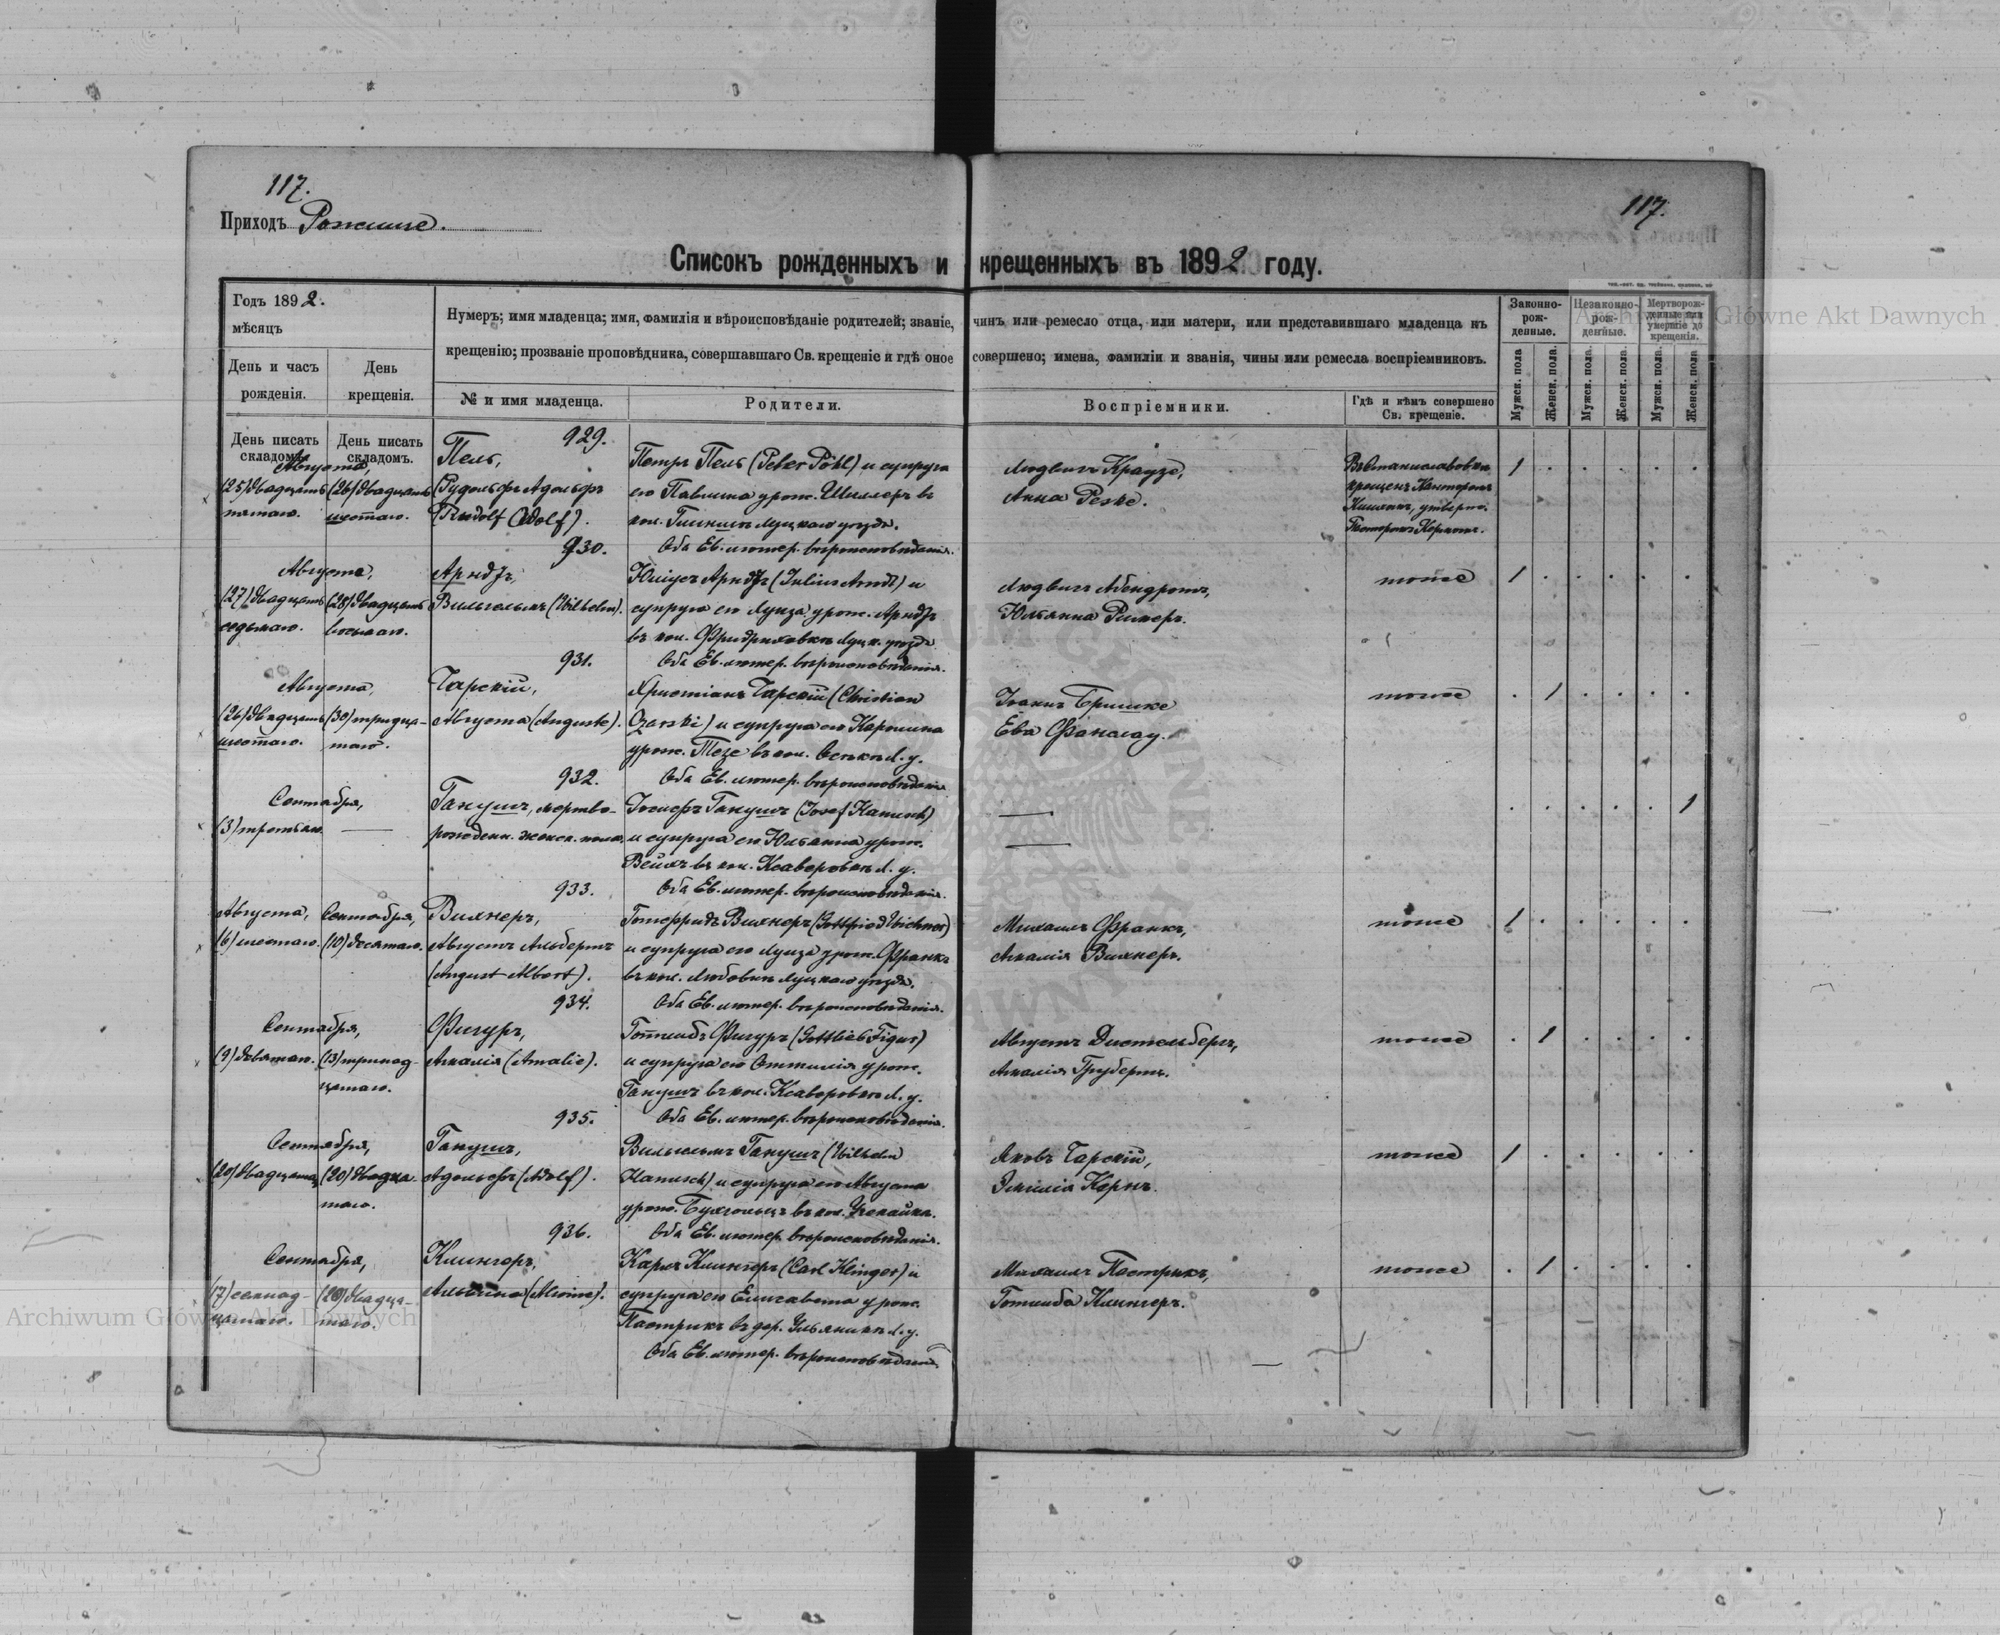 117.
117.
Приходъ Рожище.
Списокъ рожденныхъ и крещенныхъ въ 1892 году.
Годъ 1892.
мѣсяцъ
День и часъ рожденія.
День крещенія.
Нумеръ; имя младенца; имя, фамилія и вѣроисповѣданіе родителей; званіе, чинъ или ремесло отца, или матери, или представившаго младенца къ
крещенію; прозваніе проповѣдника, совершавшаго Св. крещеніе и гдѣ оное совершено; имена, фамиліи и званія, чины или ремесла воспріемниковъ.
№ и имя младенца.
Родители.
Воспріемники.
Гдѣ и кѣмъ совершено
Св. крещеніе.
Законно-
рож-
денные.
Незаконно-
рож-
денные.
Мертворож-
денные или
умершіе до
крещенія.
Мужск. пола
Женск. пола.
Мужск. пола.
Женск. пола.
Мужск. пола.
Женск. пола
День писать
складомъ.
День писать
складомъ.
929.
Августа,
(25) двадцать
пятаго.
(26) двадцать
шестаго.
Пель,
(Рудольфъ Адольфъ
(Rudolf Adolf).
Петръ Пель (Peter Pöhl) и супруга
его Павлина урож. Шиллеръ въ
кол. луцкаго уѣзда.
Оба Ев. лютер. вѣроисповѣданія.
Людвигъ Краузе,
Анна Реske.
Въ Станиславовкѣ
крещенъ Канторомъ
утвержд.
Пасторомъ Керномъ.
1
930.
Августа,
(27) двадцать
седьмаго.
(28) двадцать
восьмаго.
Арндтъ,
Вильгельмъ (Wilhelm).
Юліусъ Арндтъ (Julius Arndt) и
супруга его Луиза урож. Арндтъ
въ кол. Фридриховкѣ Луцк. уѣзда
Оба Ев. лютер. вѣроисповѣданія.
Людвигъ Абендротъ,
Юльянна Ример.
тоже
1
931.
Августа,
(26) двадцать
шестаго.
(30) тридца-
таго.
Чарскій,
Августа (Auguste).
Христіанъ Чарскій (Christian
Czarski) и супруга его Каролина
урож. Тезе въ кол. Осѣкѣ Л. у.
Оба Ев. лютер. вѣроисповѣданія.
Іоганъ Бришке
Ева Фанслау.
тоже
1
932.
Сентября,
(3) третьяго
Ганушъ, мертво-
рожденн. женск. пола,
Іосифъ Ганушъ (Josef Hanusch)
и супруга его Юльянна урож.
Вейхъ въ кол. Ксаверовкѣ Л. у.
Оба Ев. лютер. вѣроисповѣданія.
1
933.
Августа,
(6) шестаго.
Сентября,
(10) десятаго.
Вихнеръ,
Августъ Альбертъ
(August Albert).
Готфридъ Вихнеръ (Gottfried Wichner)
и супруга его Луиза урож. Франкъ
въ кол. Любовкѣ Луцкаго уѣзда.
Оба Ев. лютер. вѣроисповѣданія.
Михаилъ Франкъ,
Амалія Вихнеръ.
тоже
1
934.
Сентября,
(9) девятаго.
(13) тринад-
цатаго.
Фигуръ,
Амалія (Amalie).
Готлибъ Фигуръ (Gottlieb Figur)
и супруга его Оттилія урож.
Ганушъ въ кол. Ксаверовкѣ Л. у.
Оба Ев. лютер. вѣроисповѣданія.
Августъ Дистельбергъ,
Амалія Грубертъ.
тоже
1
935.
Сентября,
(20) двадцатаго
(20) двадца-
таго.
Ганушъ,
Адольфъ (Adolf).
Вильгельмъ Ганушъ (Wilhelm
Hanusch) и супруга его Августа
урож. Бухгольцъ въ кол.
Оба Ев. лютер. вѣроисповѣданія.
Яковъ Чарскій,
Эмилія Кернъ.
тоже
1
936.
Сентября,
(17) семнад-
цатаго.
(20) двадца-
таго.
Клингеръ,
Альвина (Alwine).
Карлъ Клингеръ (Carl Klinger) и
супруга его Елисавета урож.
Пастрикъ въ дер. Ульяникѣ Л. у.
Оба Ев. лютер. вѣроисповѣданія
Михаилъ Пастрикъ,
Готлиба Клингеръ.
тоже
1
Archiwum Główne Akt Dawnych
Archiwum Główne Akt Dawnych